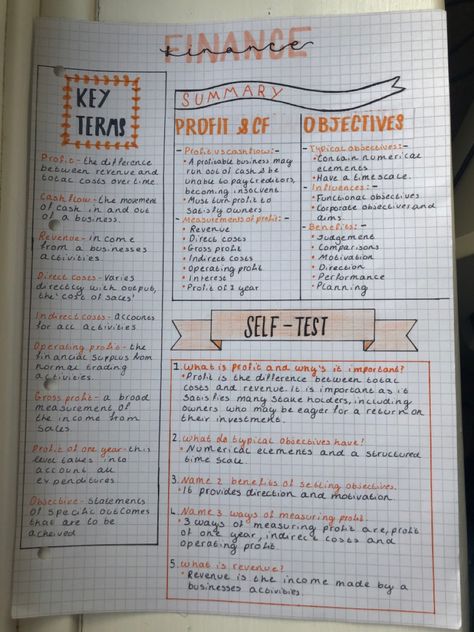 FINANCE
finance
KEY
TERMS
Profit - the difference
between revenue and
total costs over time
Cash flow - the movement
of cash in and out
of a business.
Revenue - income
from a businesses
activities
Direct costs - varies
directly with output,
the 'cost of sales'
Indirect costs - accounts
for all activities
Operating profit - the
financial surplus from
normal trading
activities.
Gross profit - a broad
measurement of
the income from
sales
Profit of one year - this
level takes into
account all
expenditures
Objective - statements
of specific outcomes
that are to be
achieved
SUMMARY
PROFIT & CF
- Profit vs cashflow:-
• A profitable business may
run out of cash & be
unable to pay creditors,
becoming insolvent
• Must turn profit to
satisfy owners
- Measurements of profit:-
• Revenue
• Direct costs
• Gross profit
• Indirect costs
• Operating profit
• Interest
• Profit of 1 year
OBJECTIVES
- Typical objectives:-
• Contain numerical
elements
• Have a timescale.
- Influences:-
• Functional objectives
• Corporate objectives and
aims
- Benefits:-
• Judgement
• Comparisons
• Motivation
• Direction
• Performance
• Planning
SELF-TEST
1. What is profit and why's it important?
• Profit is the difference between total
costs and revenue. It is important as it
satisfies many stakeholders, including
owners who may be eager for a return on
their investment.
2. What do typical objectives have?
• Numerical elements and a structured
time scale.
3. Name 2 benefits of setting objectives.
• It provides direction and motivation.
4. Name 3 ways of measuring profit
• 3 ways of measuring profit are, profit
of one year, indirect costs and
operating profit.
5. What is revenue?
• Revenue is the income made by a
businesses activities.